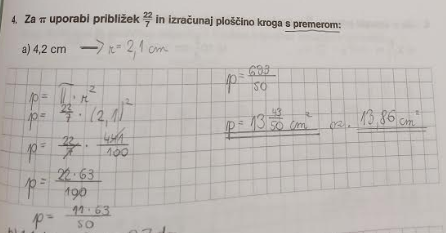 4. Za π uporabi približek 22/7 in izračunaj ploščino kroga s premerom:
a) 4,2 cm → r = 2,1 cm
p = π · r²
p = 22/7 · (2,1)²
p = 22/7 · 441/100
p = 22·63/100
p = 11·63/50
p = 693/50
p = 13 43/50 cm² oz. 13,86 cm²